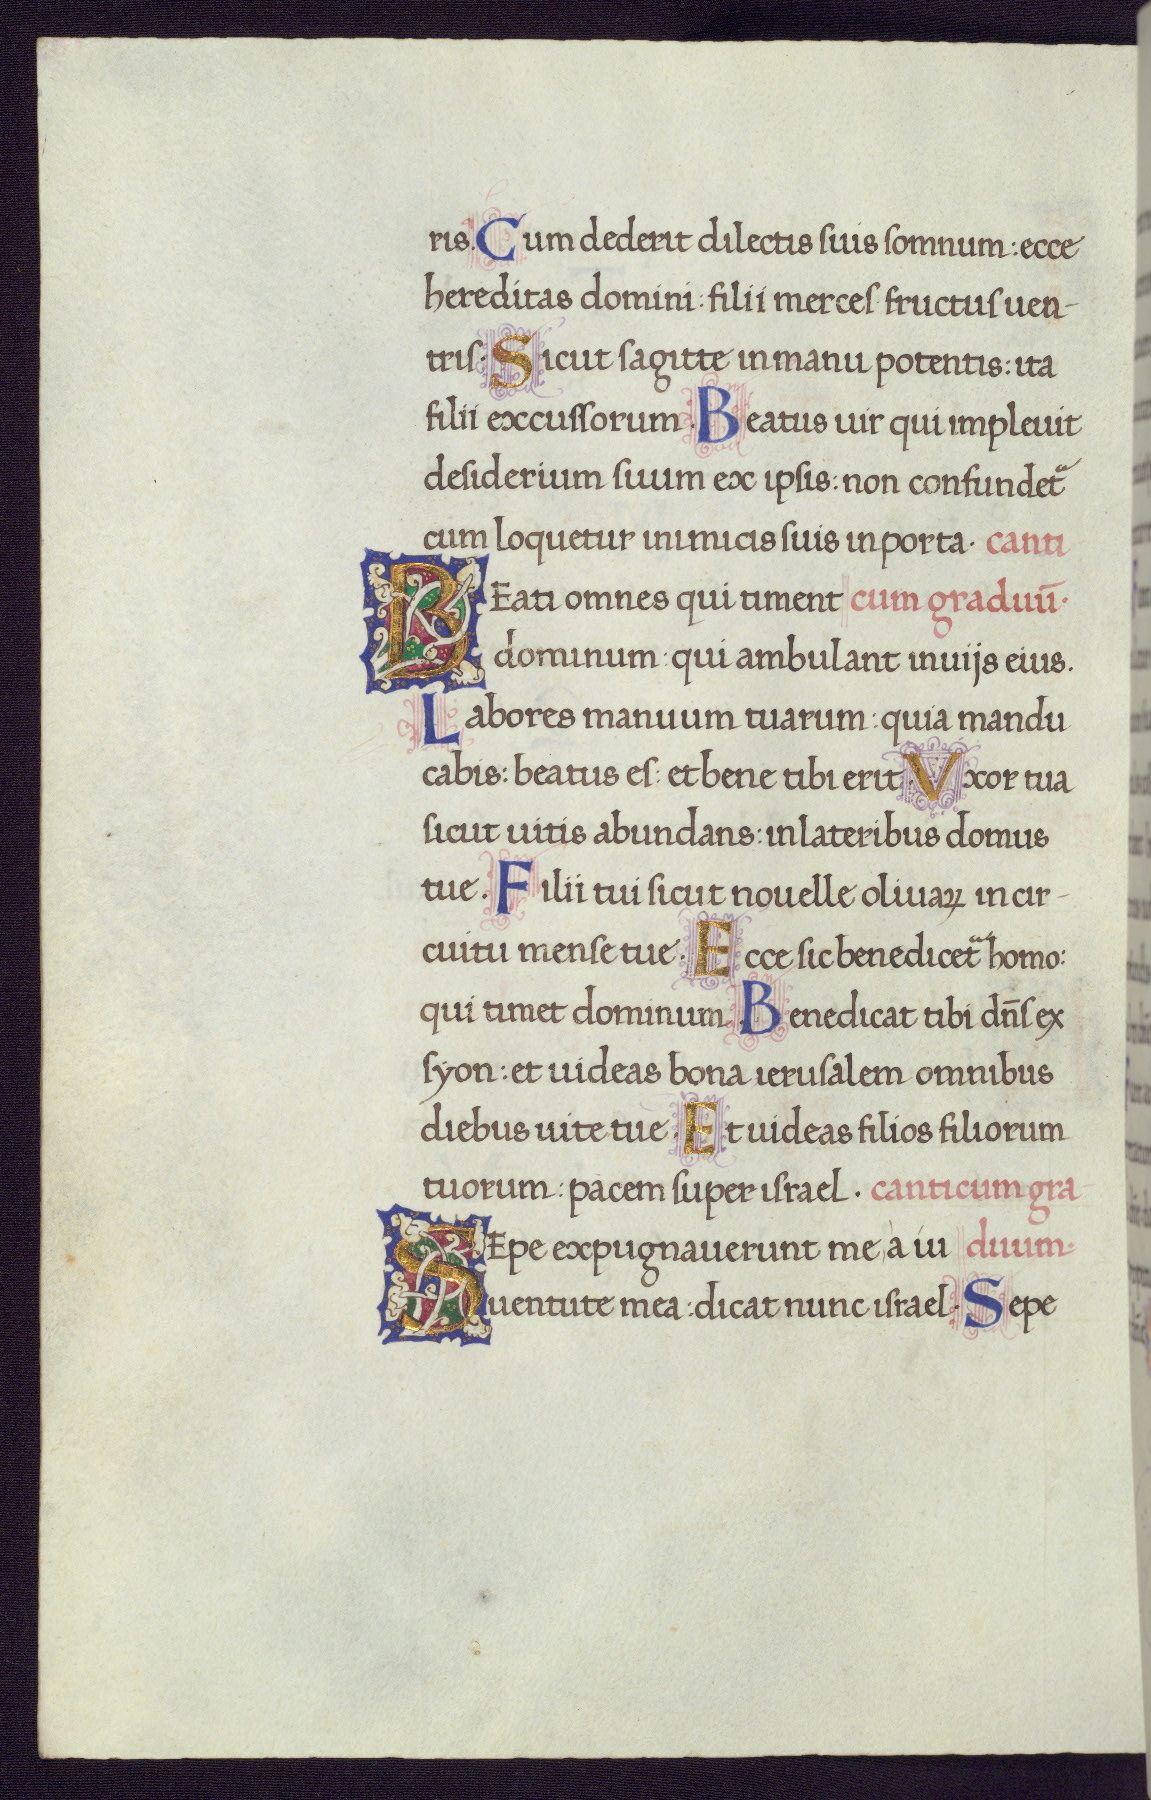 ris. Cum dederit dilectis suis somnum: ecce
hereditas domini: filii merces fructus uen-
tris. Sicut sagitte in manu potentis: ita
filii exccussorum. Beatus uir qui impleuit
desiderium suum ex ipsis: non confundetᷓ
cum loquetur inimicis suis in porta. canti
BEati omnes qui timent cum graduū.
dominum: qui ambulant in uijs eius.
Labores manuum tuarum: quia mandu
cabis: beatus es: et bene tibi erit. Vxor tua
sicut uitis abundans: in lateribus domus
tue. Filii tui sicut nouelle oliuaꝝ in cir-
cuitu mense tue. Ecce sic benedicetᷓ homo:
qui timet dominum. Benedicat tibi dn̄s ex
sÿon: et uideas bona ierusalem omnibus
diebus uite tue. Et uideas filios filiorum
tuorum: pacem super israel. canticum gra
SEpe expugnauerunt me à iu duum.
uentute mea: dicat nunc israel. Sepe